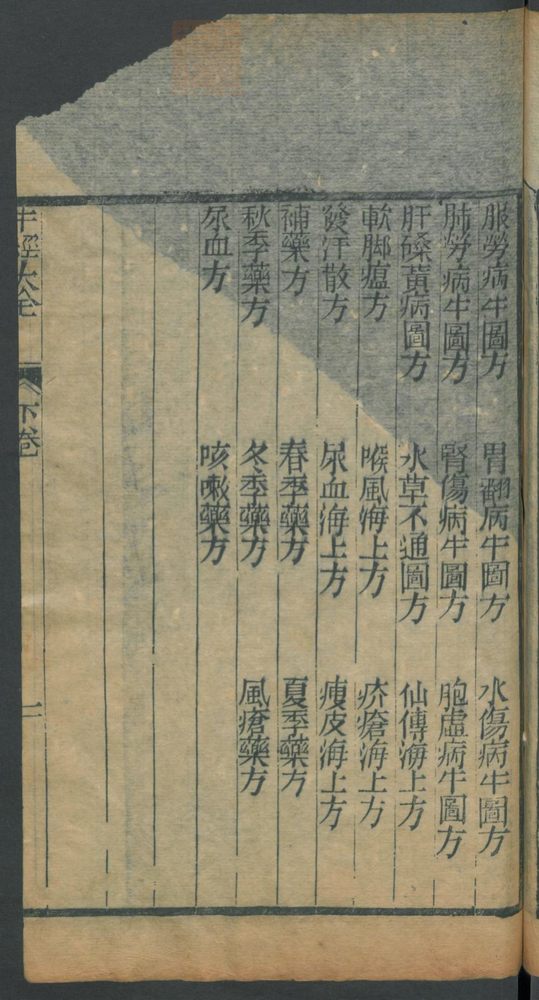 服勞病牛圖方 胃翻病牛圖方 水傷病牛圖方
肺勞病牛圖方 腎傷病牛圖方 胞虛病牛圖方
肝𦞴黃病圖方 水草不通圖方 仙傳海上方
軟脚瘟方 喉風海上方 疥瘡海上方
發汗散方 尿血海上方 瘦皮海上方
補藥方 春季藥方 夏季藥方
秋季藥方 冬季藥方 風瘡藥方
尿血方 咳嗽藥方
牛經大全 下卷 二